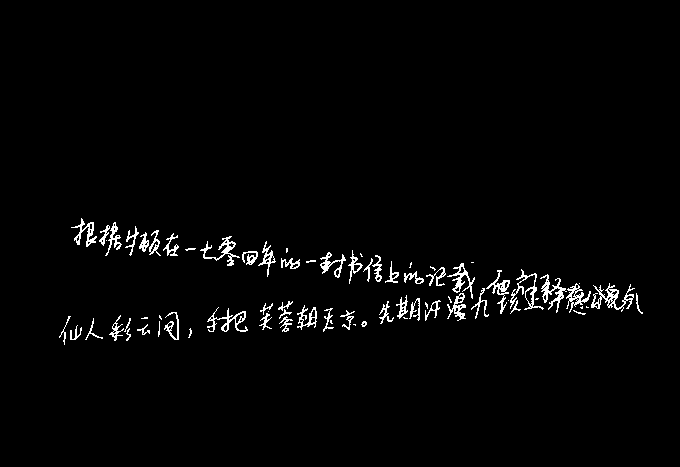 根据牛顿在一七零四年的一封书信上的记载,
仙人彩云间,手把芙蓉朝玉京。先期汗漫九垓上